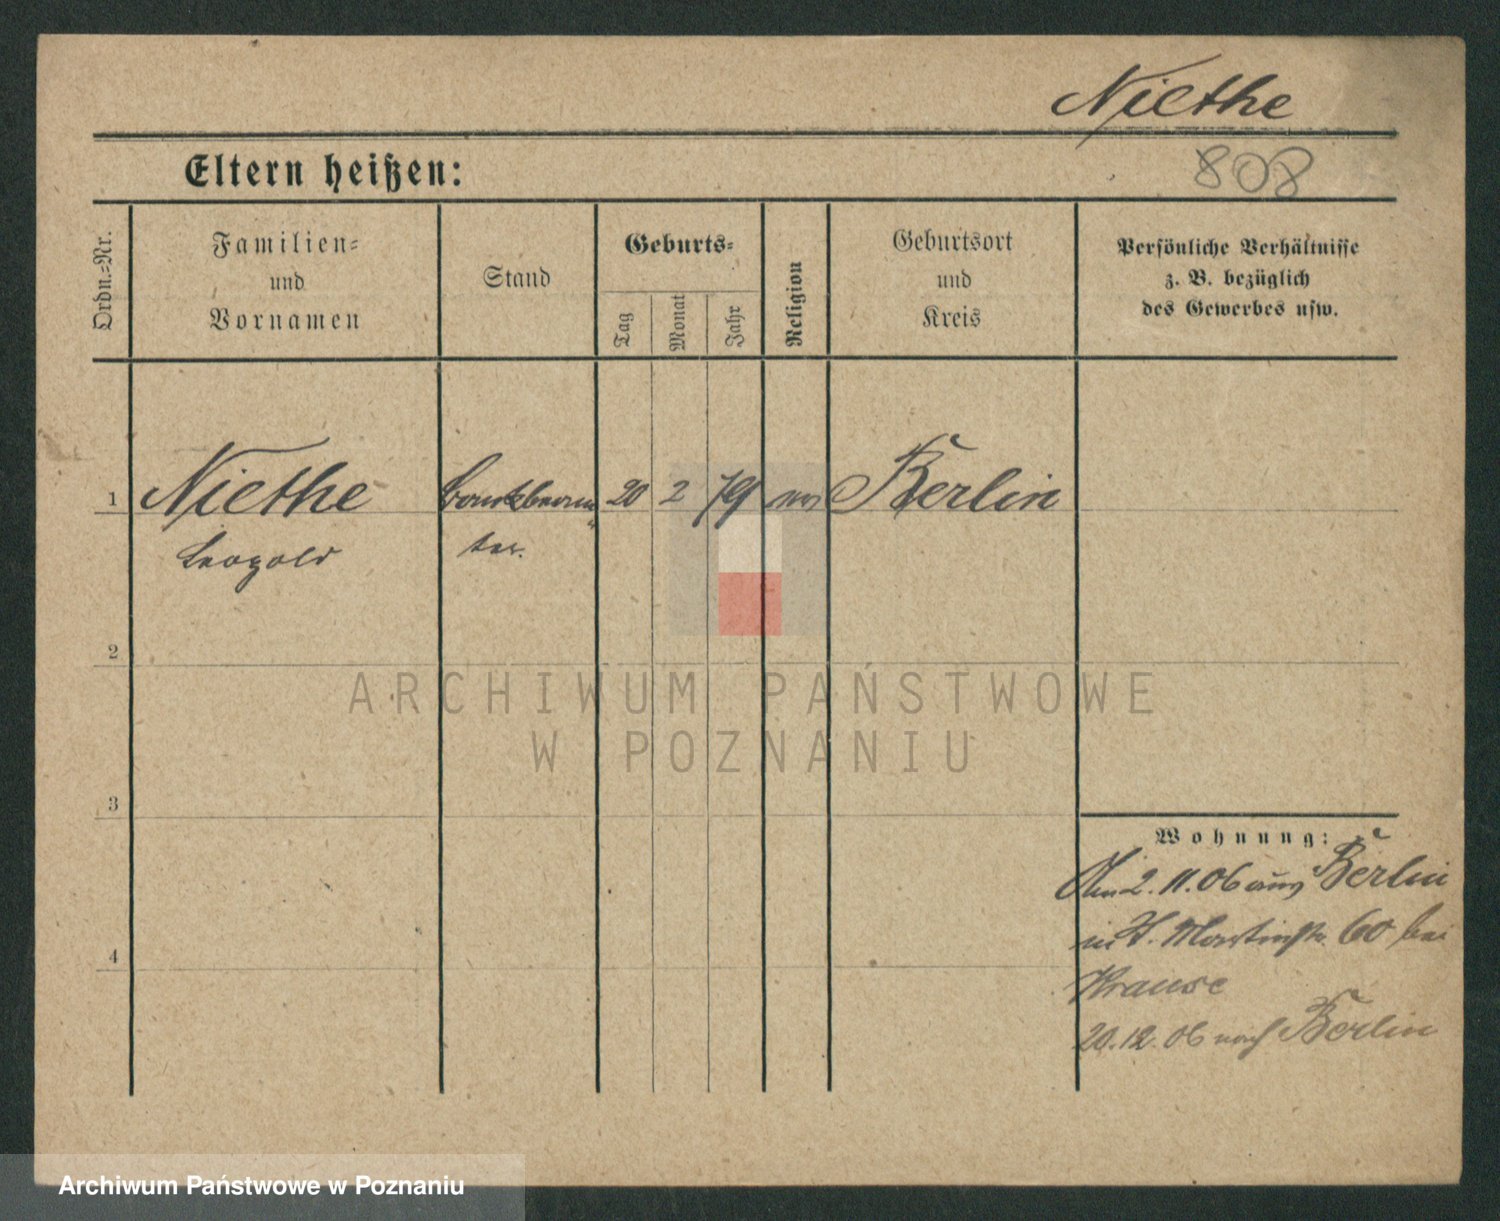 Niethe
Eltern heißen:
808
Ordn.=Nr.
Familien=
und
Vornamen
Stand
Geburts=
Tag
Monat
Jahr
Religion
Geburtsort
und
Kreis
Persönliche Verhältnisse
z. B. bezüglich
des Gewerbes usw.
1 Niethe Bankbeam= 20 2 79 Berlin
Leopold ter.
2
3
4
Wohnung:
2.11.06 aus Berlin
in St. Martinstr. 60 bei
Krause
20.12.06 nach Berlin
ARCHIWUM PAŃSTWOWE
W POZNANIU
Archiwum Państwowe w Poznaniu